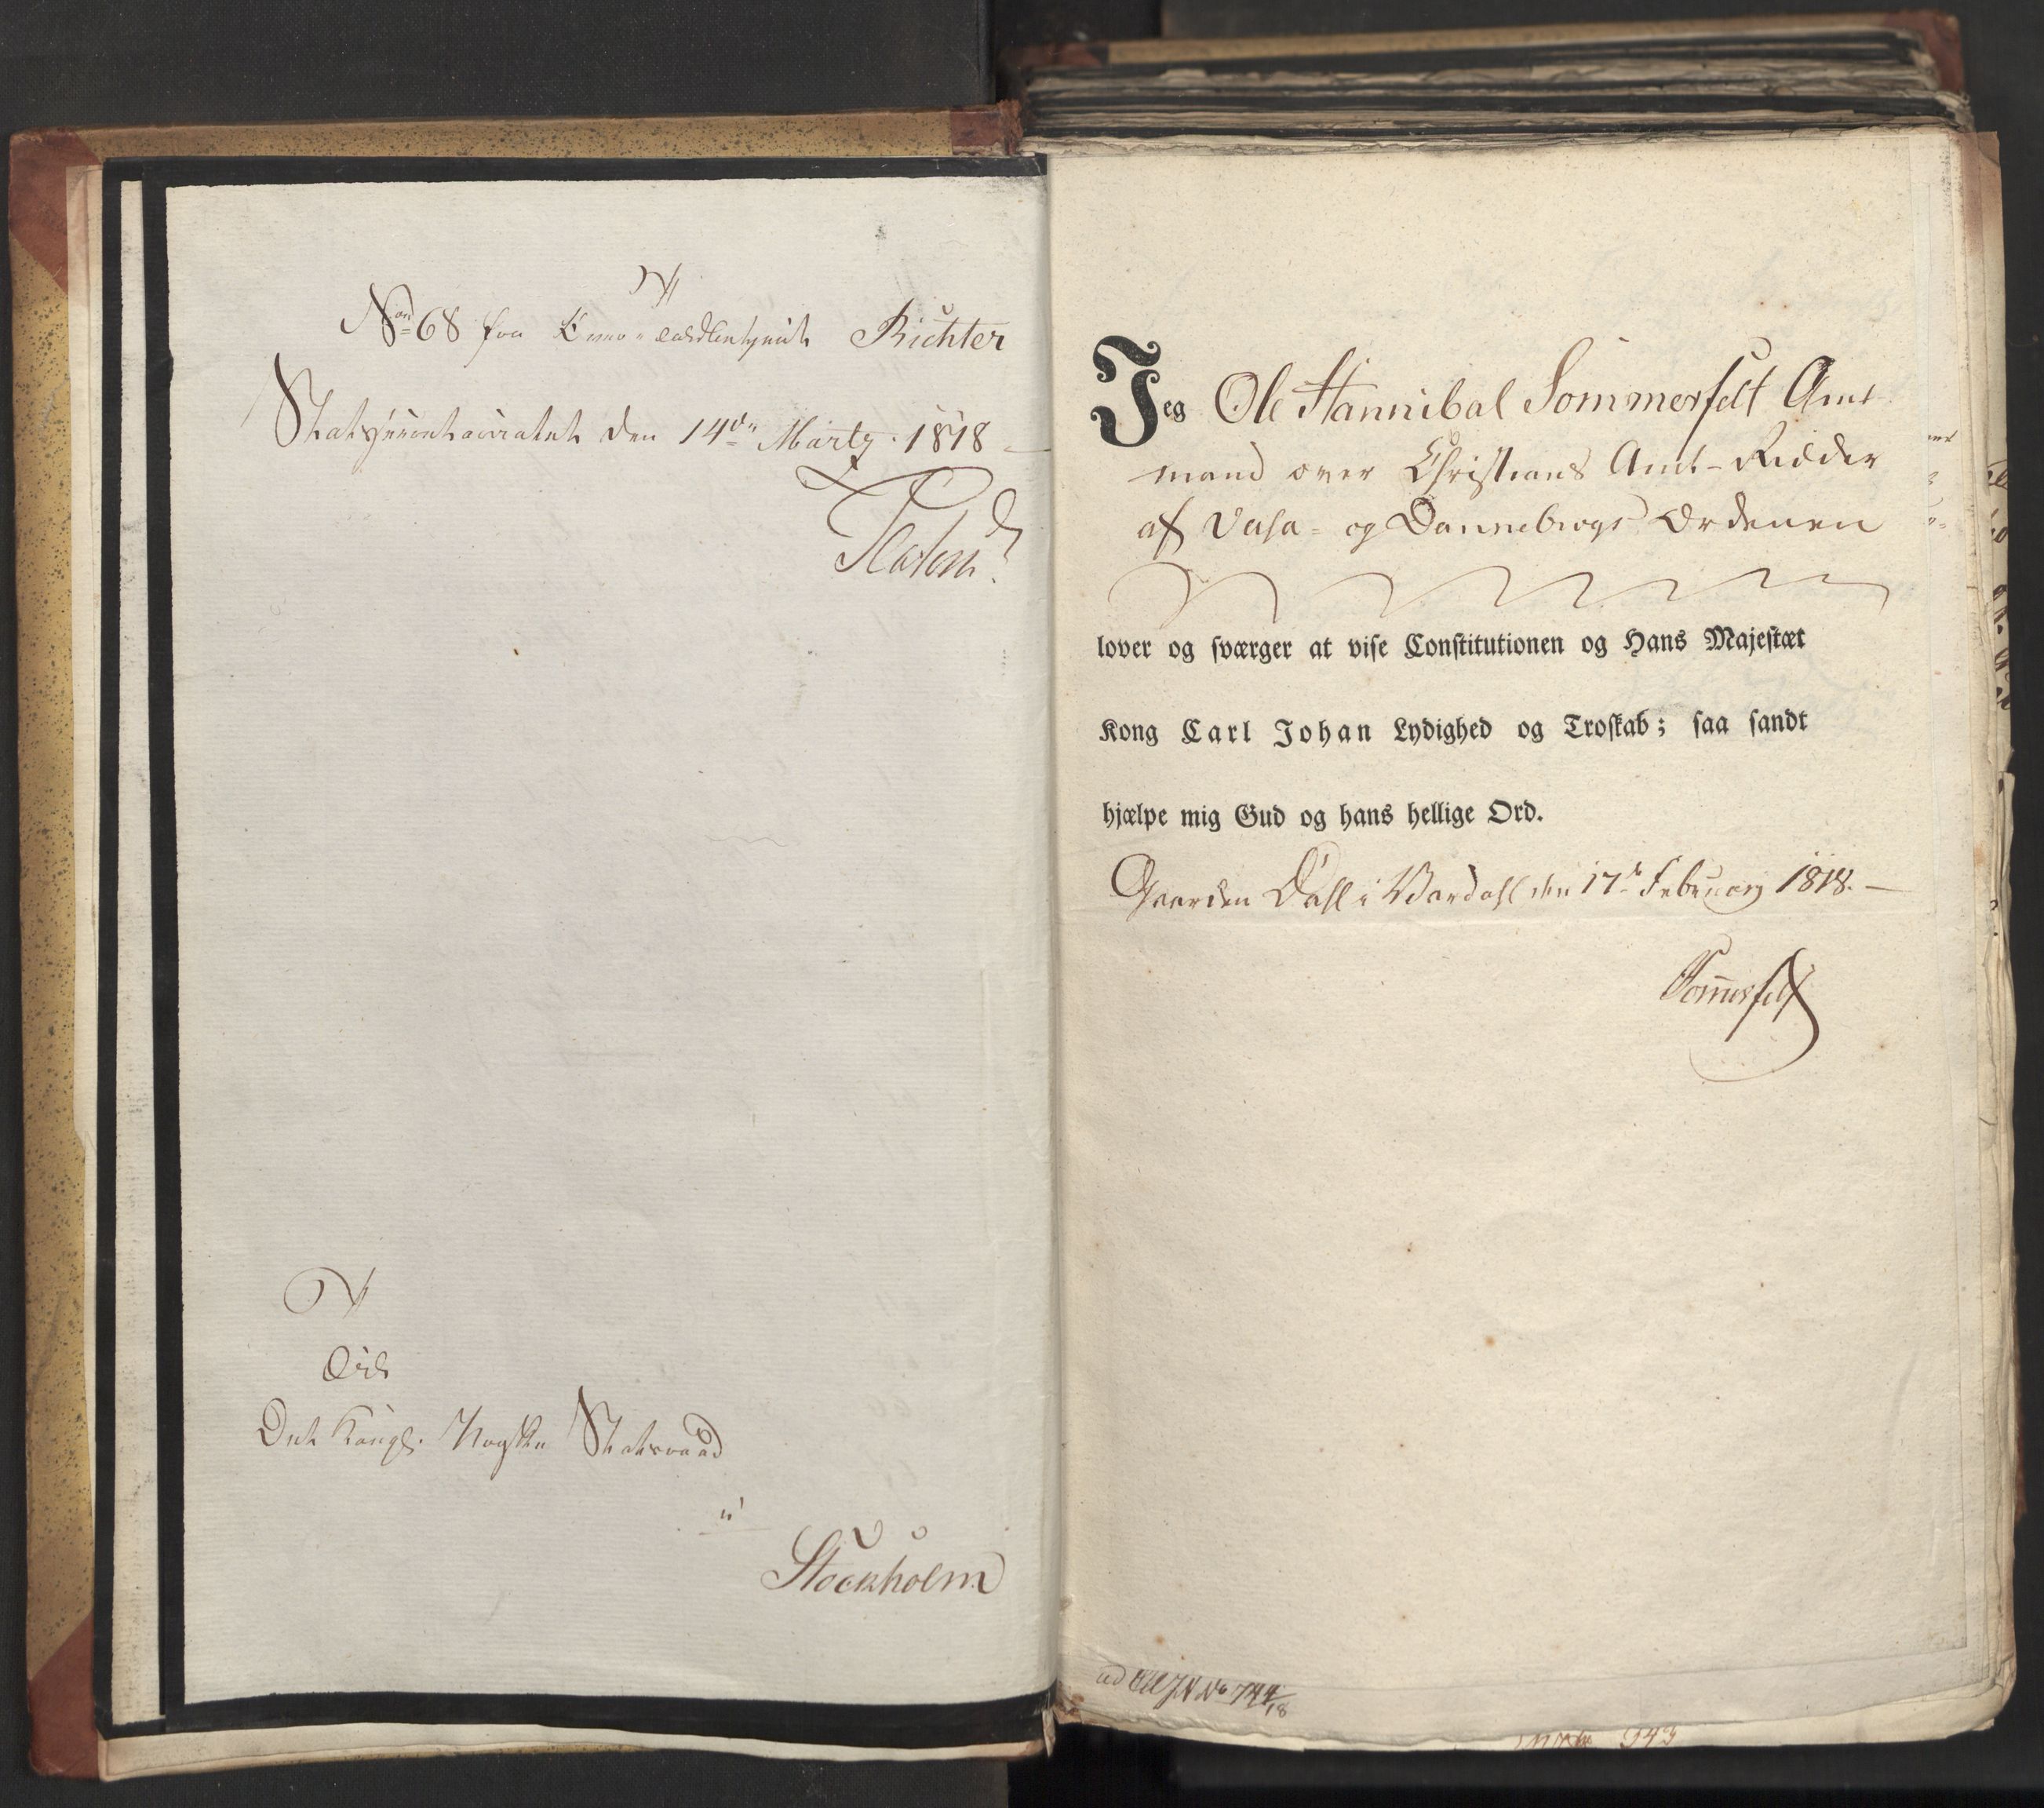 No 68 fra Richter
Statssecretariatet den 14de Martz 1818
Det Kongl. Norske Statsraad
i
Stockholm
Jeg Ole Hannibal Sommerfelt Amt
mand over Christians Amt - Ridder
af Vasa- og Dannebrogs Ordenen
lover og sværger at vise Constitutionen og Hans Majestæt
Kong Carl Johan Lydighed og Troskab; saa sandt
hjælpe mig Gud og hans hellige Ord.
Gaarden Dahl i Vardahl den 17de Februarj 1818.
Sommerfelt
ad No 744/18